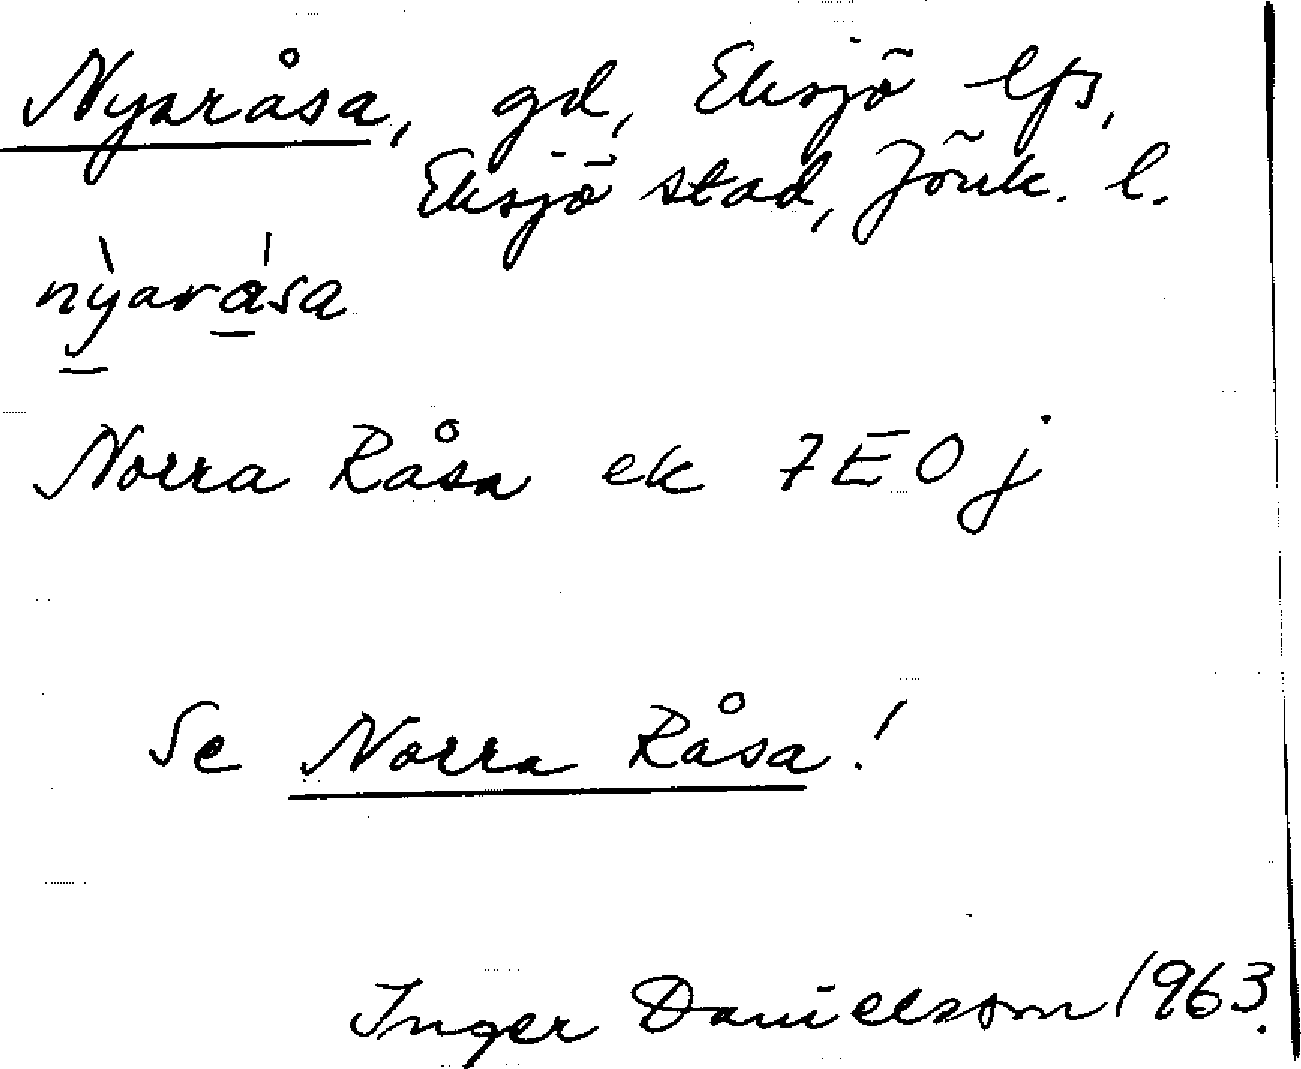 Nyaråsa, gd, Eksjö lfs,
Eksjö stad, Jönk. l.
nỳarása
Norra Råsa ek 7E0j
Se Norra Råsa!
Inger Danielsson 1963.